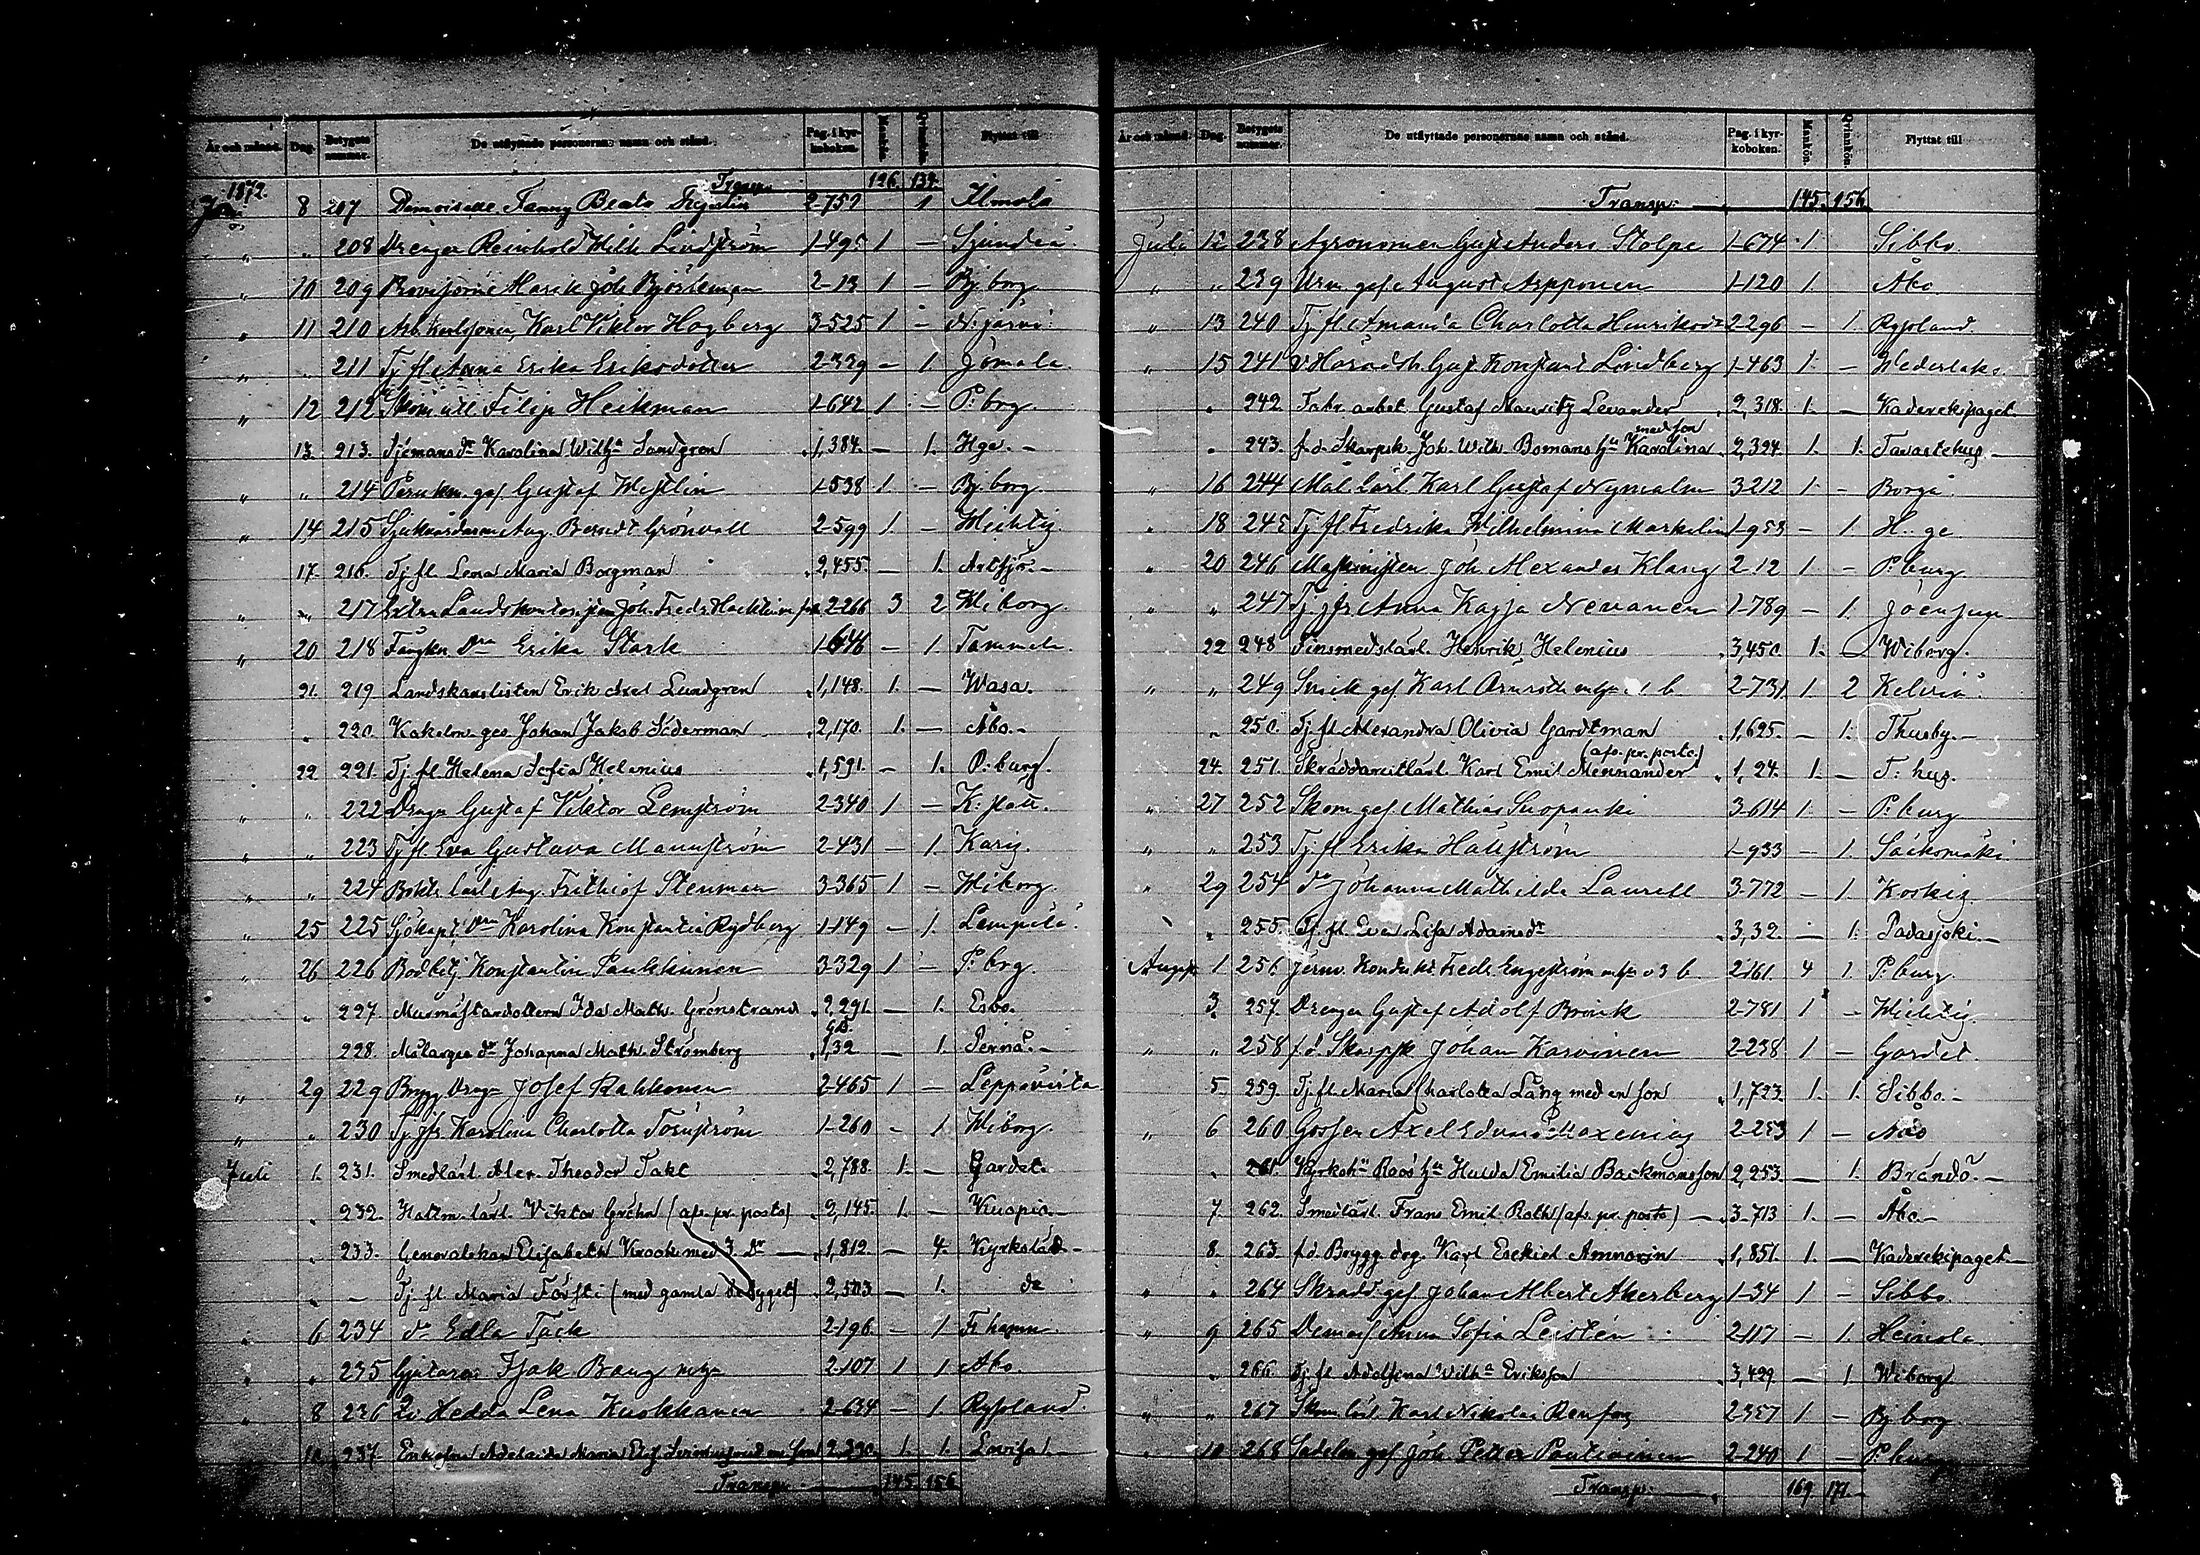 År och månad. Dag. Betygets nummer. De utflyttade personernas namn och stånd. Pag. i kyrkoboken. Mankön. Qvinkön. Flyttat till
1872. Transp. 126. 134.
8 207 Demoiselle Fanny Beata 2-759 1 Ilmola
" " 208 Drengen Reinhold Wilh. Lindström 1-495 1 — Sjundeå
" 10 209 Provisorn Mar Joh. Björkman 2-13 1 — Bj.borg
" 11 210 Arb. Karl Viktor Hogberg 3-525 1 — N.järvi
" " 211 Tj. fl. Anna Erika Eriksdotter 2-339 — 1. Jomala
" 12 212 Filip Heikman 1-642 1 — P:brg.
13 213. Sjömansdr Karolina Wilha Sandgren 1,384. — 1. Hge. —
" " 214 ges. Gustaf Westlin 1-538 1. — Bj.borg.
" 14 215 Aug. Berndt Grönvall 2-599 1. — Wichtis
17. 216. Tj. fl. Lena Maria Borgman 2,455. — 1. Artsjö. —
" " 217 Extra Landskontoristen Joh. Fredr. 2-266 3 2 Wiborg.
" 20 218 Erika Stark 1-646 — 1. Tammela
21. 219. Landskanslisten Erik Axel Lundgren 1,148. 1. — Wasa.
" 220. Kakelm. ges. Johan Jakob Söderman 2,170. 1. — Åbo. —
22 221. Tj. fl. Helena Sofia Helenius 1,591. — 1. P:burg.
" " 222 Drengen Gustaf Viktor Lemström 2-340 1 — K:slätt.
" " 223 Tj. fl. Eva Gustava Mannström 2-431 — 1. Karis.
" " 224 Aug. Frithiof Stenman 3-365 1 — Wiborg.
" 25 225 Sjökapt. Karolina Konstantia Rydberg 1-149 — 1. Lempälä.
" 26 226 Bodbetj. Konstantin Paukkunen 3-329 1 — P:brg.
" 227. Murmästardottern Ida Math. Grönstrand 2,291. — 1. Esbo.
228. Målarges. dr Johanna Math. Strömberg 1,32 — 1. Pernå. —
" 29 229 Brygg. Drengen Josef Rahkonen 2-465 1 — Leppävirta
" " 230 Tj. jfr. Karolina Charlotta Törnström 1-260 — 1 Wiborg.
Juli 1. 231. Smedlärl. Alex. Theodor Takt 2,788. 1. — Gardet.
" 232. Hattm. lärl. Viktor Gröhn (afs. pr. posto) 2,145. 1. — Kuopio. —
" 233. Generalskan Elisabeth Krook med 3 dr — 1,812. — 4. Kyrkslätt —
" — Tj. fl. Maria Försti (med gamla betyget) 2,503 — 1. do
" 6 234 do Edla Tack 2-196. — 1 Fr.hamn
" " 235 Gjutaren Isak Bang 2-107 1 1 Åbo
" 8 236 Hedda Lena Kuokkanen 2-634 — 1 Ryssland.
10 237. Enkefru Adelaide Maria med en son 2-330 1. 1. Lovisa
Transp. 145. 156.
År och månad. Dag. Betygets nummer. De utflyttade personernas namn och stånd. Pag. i kyrkoboken. Mankön. Qvinkön. Flyttat till
Transp. 145. 156.
Juli 12 238 Agronomen Gust. Anders Stolpe 1-674 1 Sibbo.
" " 239 Urm. ges. August Arpponen 1-120 1. Åbo
" 13 240 Tj. fl. Amanda Charlotta Henriksdr 2-296 — 1. Ryssland
" 15 241 V. Häradsh. Gust. Konstant. Lindberg 1-463 1. — Wederlaks
" 242. Tobr. arbet. Gustaf Mauritz Levander 2,318. 1. — Kadercekipaget
" 243. f. d. Skarpsk. Joh. Wilh. Bomans hu Karolina med son 2,324 1. 1. Tavastehus —
" 16 244 Mål. lärl. Karl Gustaf Nymalm 3-212 1 — Borgå
" 18 245 Tj. fl. Fredrika Wilhelmina Markelin 1-953 — 1. H:ge.
" 20 246 Maskinisten Joh. Alexander Klang 2-12 1 — P:burg
" " 247 Tj. jfr. Anna Kajsa Nevanen 1-789 — 1. Joensuu
22 248 Finsmedslärl. Henrik Helenius 3,450. 1. — Wiborg.
" " 249 Snick. ges. Karl 2-731 1 2 Kelviå
" 250. Tj. fl. Alexandra Olivia Gardtman 1,625. — 1. Thusby. —
24. 251. Skräddareitlärl. Karl Emil Mennander (afs. pr. posto) 1,24. 1. — T:hus.
" 27 252 Skom. ges. Mathias Suopanki 3-614 1. — P:burg
" " 253 Tj. fl. Erika Hallström 1-933 — 1. Sääksmäki
" 29 254 do Johanna Mathilda Laurell 3-772 — 1. Koskis.
" 255. Tj. fl. Eva Lisa Adamsdr 3,32. — 1. Padasjoki. —
Augsti 1 256 Jernv. Kondukt. Fredr. Engeström m. hu o 3 b 2-161 4 1. P:burg
3. 257. Drengen Gustaf Adolf Brink 2-781 1 — Wichtis.
" " 258 f. d. Skarpsk. Johan Karvinen 2-238 1 — Gardet.
5. 259. Tj. fl. Maria Charlotta Lång med en son 1,723. 1. 1. Sibbo. —
" 6 260 Gossen Axel Edvard 2-253 1 — Åbo
" 261. Kyrkoh. Roos' hu Hulda Emilia Backmansson 2,253. — 1. Brändö. —
7. 262. Smedlärl. Frans Emil Roth (afs. pr. posto) — 3-713 1. — Åbo —
8. 263. f. d. Brygg. drg. Karl Esekiel Ammorin 1,851. 1. — Kadercekipaget. —
" " 264 Skradd. ges. Johan Albert Akerberg 1-34 1 — Sibbo
" 9 265 Demois. Anna Sofia Leistén 2-117 — 1. Heinola
" 266. Tj. fl. Adolfina Wilha Eriksson 3,499. — 1. Wiborg
" " 267 Skom. lärl. Karl Nikolai Renfors 2-357 1 — Bj.borg
" 10 268 Sadelm. ges. Joh. Petter Pautiainen 2-240 1 — P:burg
Transp. 169 171.